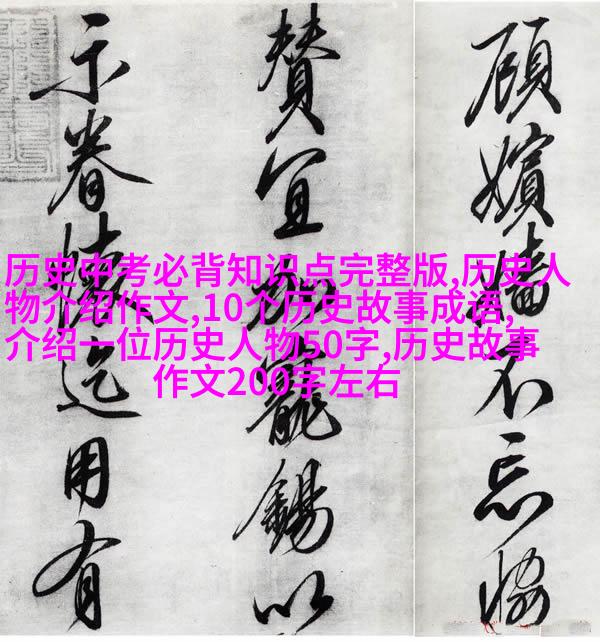 顧嬪嬙不忘恊
賛宜加寵錫以
示眷懷迄用有
历史中考必背知识点完整版,历史人
物介绍作文,10个历史故事成语,
介绍一位历史人物50字,历史故事
作文200字左右